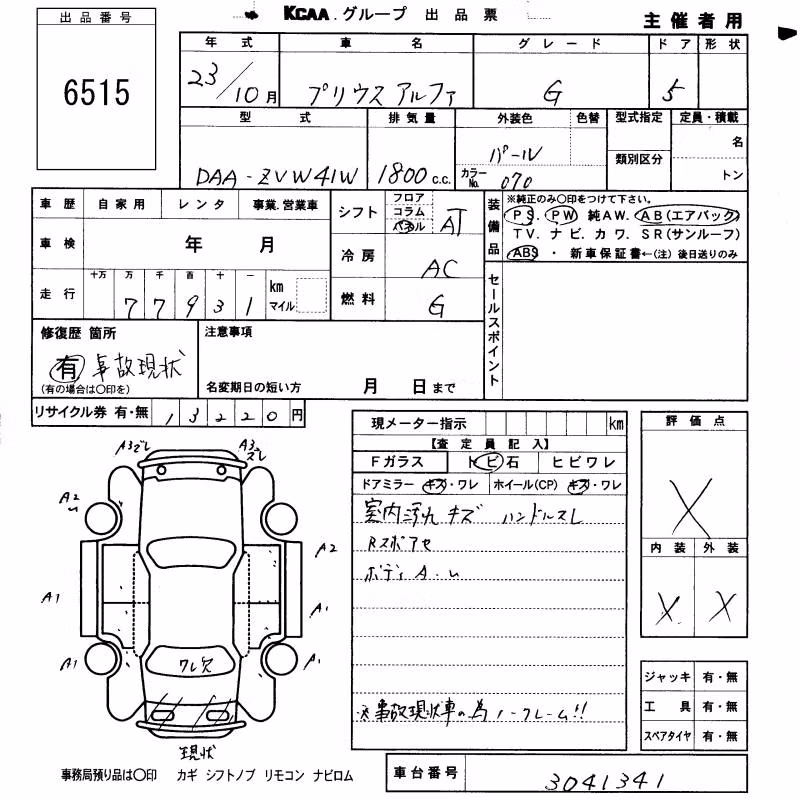 KCAA グループ 出品票
主催者用
出品番号
6515
年式 車名 グレード ドア 形状
23/10月 プリウスアルファ G 5
型式 排気量 外装色 色替 型式指定 定員・積載
類別区分 名
トン
DAA-ZVW41W 1800c.c. パール
カラーNo. 070
車歴 自家用 レンタ 事業.営業車
車検 年 月
走行 十万 万 千 百 十 一
77931 km マイル
シフト フロア コラム パネル AT
冷房 AC
燃料 G
装備品
※純正のみ○印をつけて下さい。
PS. PW 純AW. AB(エアバック)
TV. ナビ. カワ. SR(サンルーフ)
ABS ・ 新車保証書←(注)後日送りのみ
セールスポイント
修復歴 箇所
有 事故現状
(有の場合は○印を)
注意事項
名変期日の短い方 月 日まで
リサイクル券 有・無 13220円
現メーター指示 km
【査定員記入】
Fガラス トビ石 ヒビワレ
ドアミラー キズ・ワレ ホイール(CP) キズ・ワレ
室内汚れ キズ ハンドルスレ
Rスポアセ
ボディA.
※事故現状車の為ノークレーム!!
評価点
X
内装 外装
X X
ジャッキ 有・無
工具 有・無
スペアタイヤ 有・無
A3ズレ A3ズレ
A2
A2
A1 A1
A1 A1
ワレ欠
現状
事務局預り品は○印 カギ シフトノブ リモコン ナビロム
車台番号 3041341